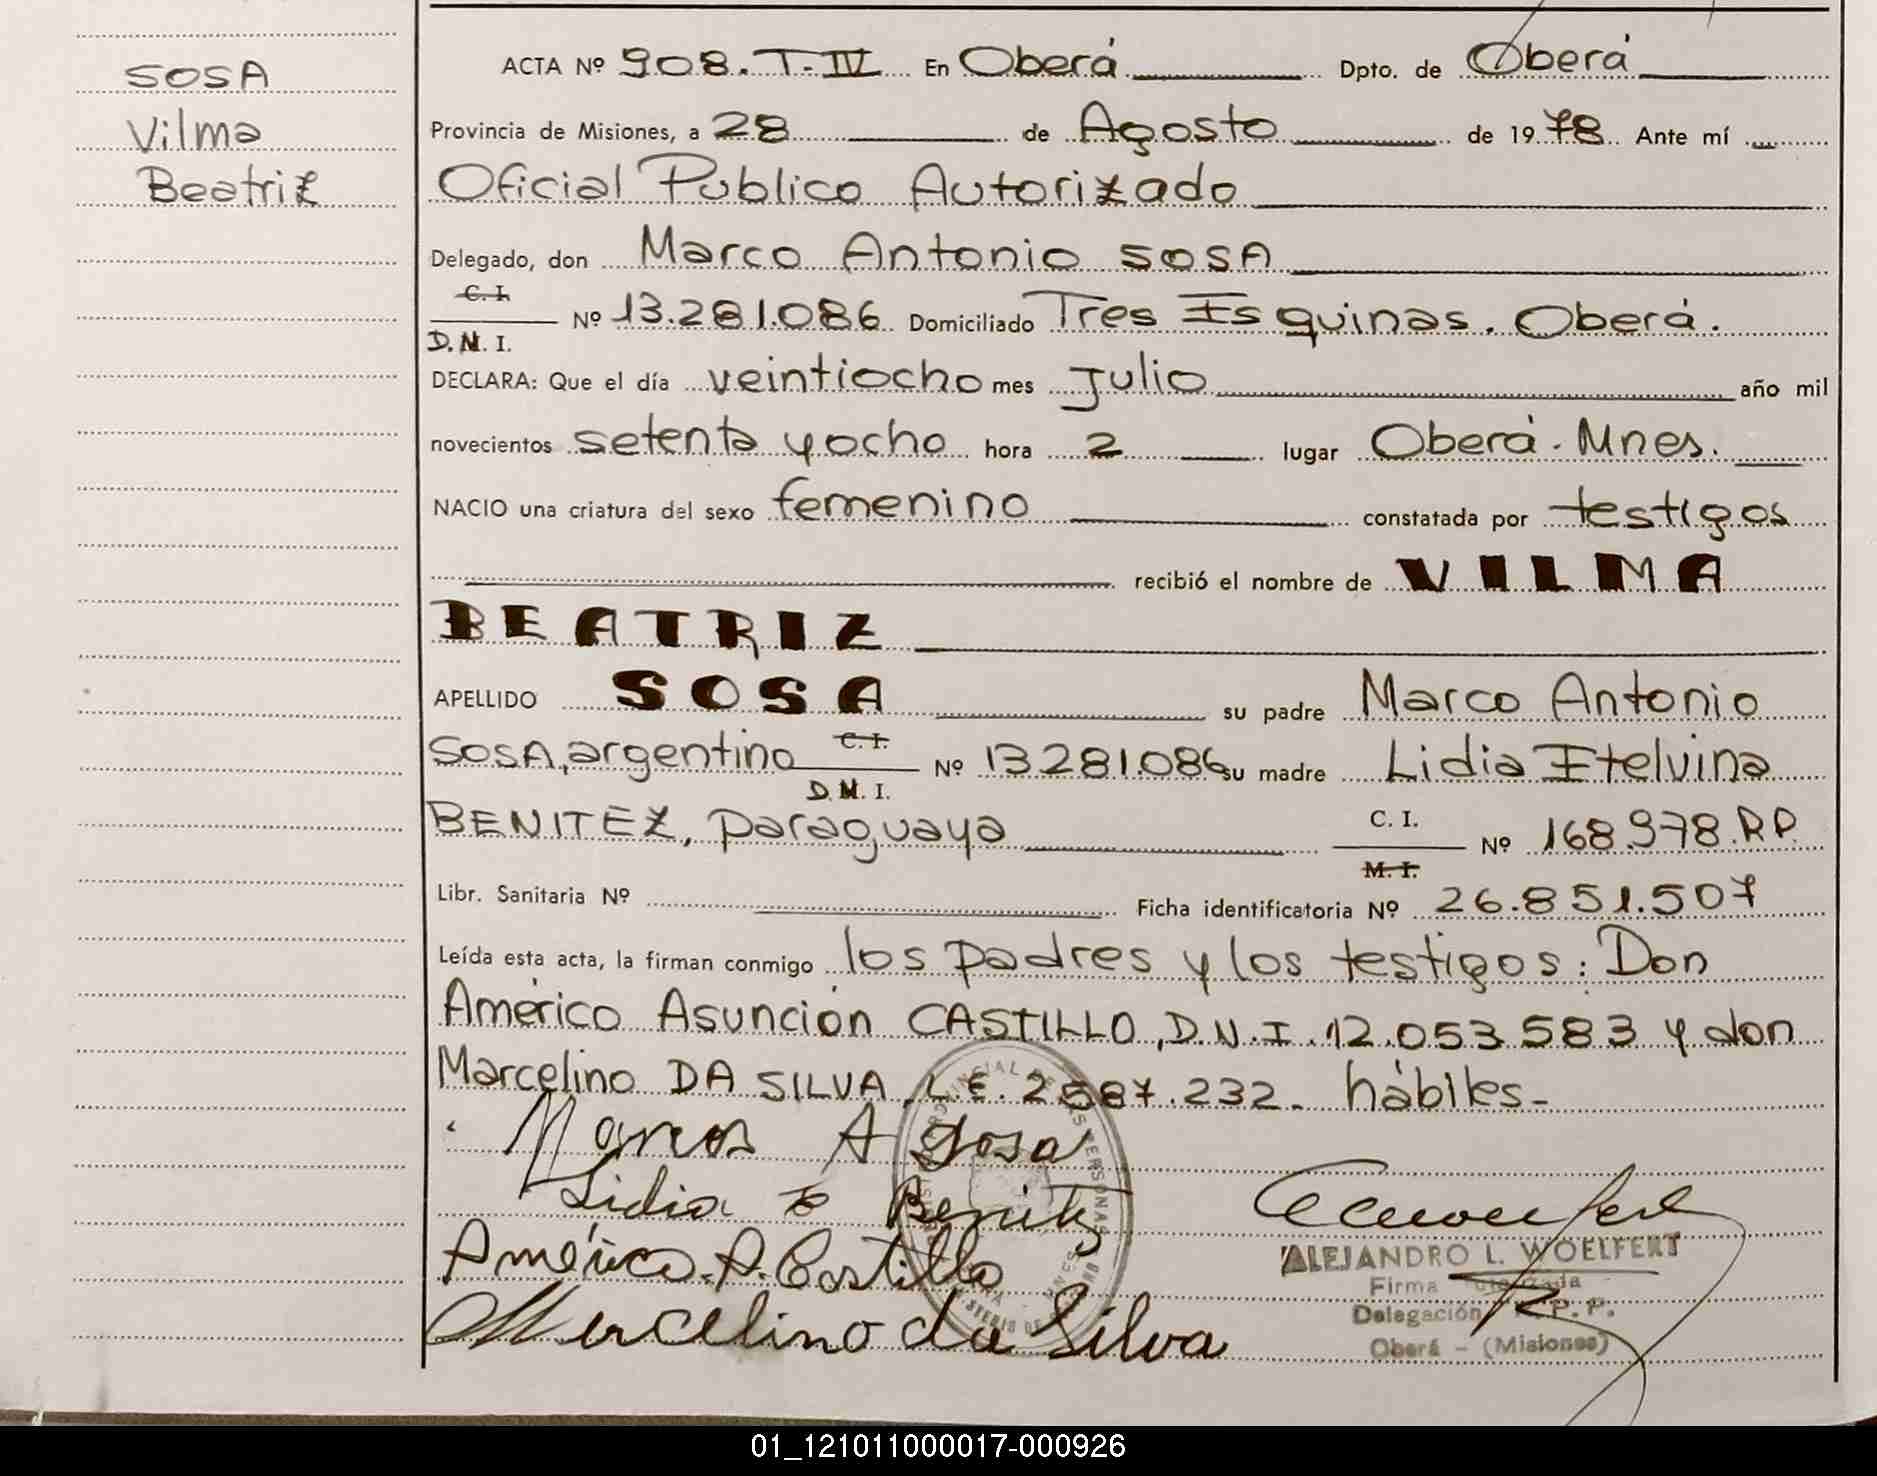 SOSA
Vilma
Beatriz
ACTA Nº 908. T-IV En Oberá Dpto. de Oberá
Provincia de Misiones, a 28 de Agosto de 1978 Ante mí
Oficial Publico Autorizado
Delegado, don Marco Antonio SOSA
C. I.
D. N. I. Nº 13.281.086 Domiciliado Tres Esquinas. Oberá.
DECLARA: Que el día veintiocho mes Julio año mil
novecientos setenta y ocho hora 2 lugar Oberá. Mnes.
NACIO una criatura del sexo femenino constatada por testigos
recibió el nombre de VILMA
BEATRIZ
APELLIDO SOSA su padre Marco Antonio
SOSA, argentino C. I. D. N. I. Nº 13281.086 su madre Lidia Etelvina
BENITEZ, paraguaya C. I. M. I. Nº 168.978.RP.
Libr. Sanitaria Nº Ficha identificatoria Nº 26.851.507
Leída esta acta, la firman conmigo los padres y los testigos: Don
Américo Asunción CASTILLO, D.N.I. 12.053.583 y don
Marcelino DA SILVA, L.E. 2587.232. hábiles-
Marcos A Sosa
Lidia E Benitz
Américo. A. Castillo
Marcelino da Silva
ALEJANDRO L. WOELFERT
Firma Autorizada
Delegación R.P.P.
Oberá - (Misiones)
01_121011000017-000926